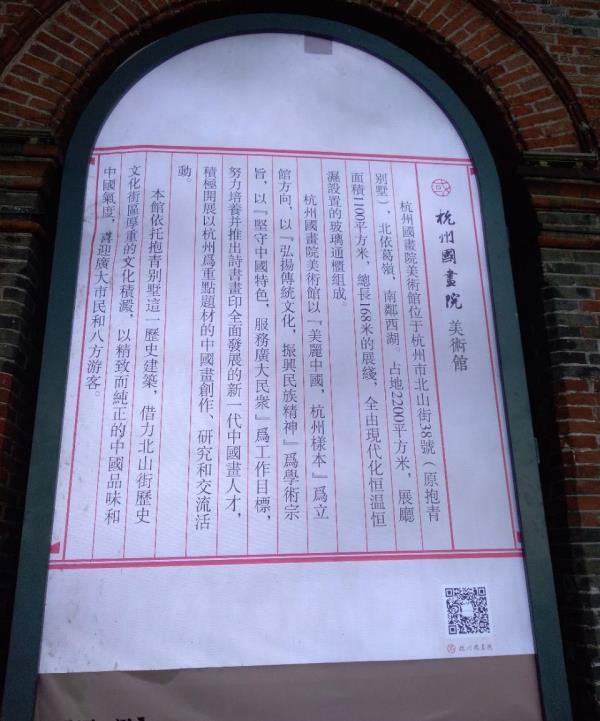 杭州國畫院 美術館
杭州國畫院美術館位于杭州市北山街38號（原抱青
別墅），北依葛嶺，南鄰西湖。占地2200平方米，展廳
面積1100平方米，總長168米的展綫，全由現代化恒温恒
濕設置的玻璃通櫃組成。
杭州國畫院美術館以『美麗中國，杭州樣本』爲立
館方向，以『弘揚傳統文化，振興民族精神』爲學術宗
旨，以『堅守中國特色，服務廣大民衆』爲工作目標，
努力培養并推出詩書畫印全面發展的新一代中國畫人才，
積極開展以杭州爲重點題材的中國畫創作、研究和交流活
動。
本館依托抱青別墅這一歷史建築，借力北山街歷史
文化街區厚重的文化積澱，以精致而純正的中國品味和
中國氣度，喜迎廣大市民和八方游客。
杭州國畫院